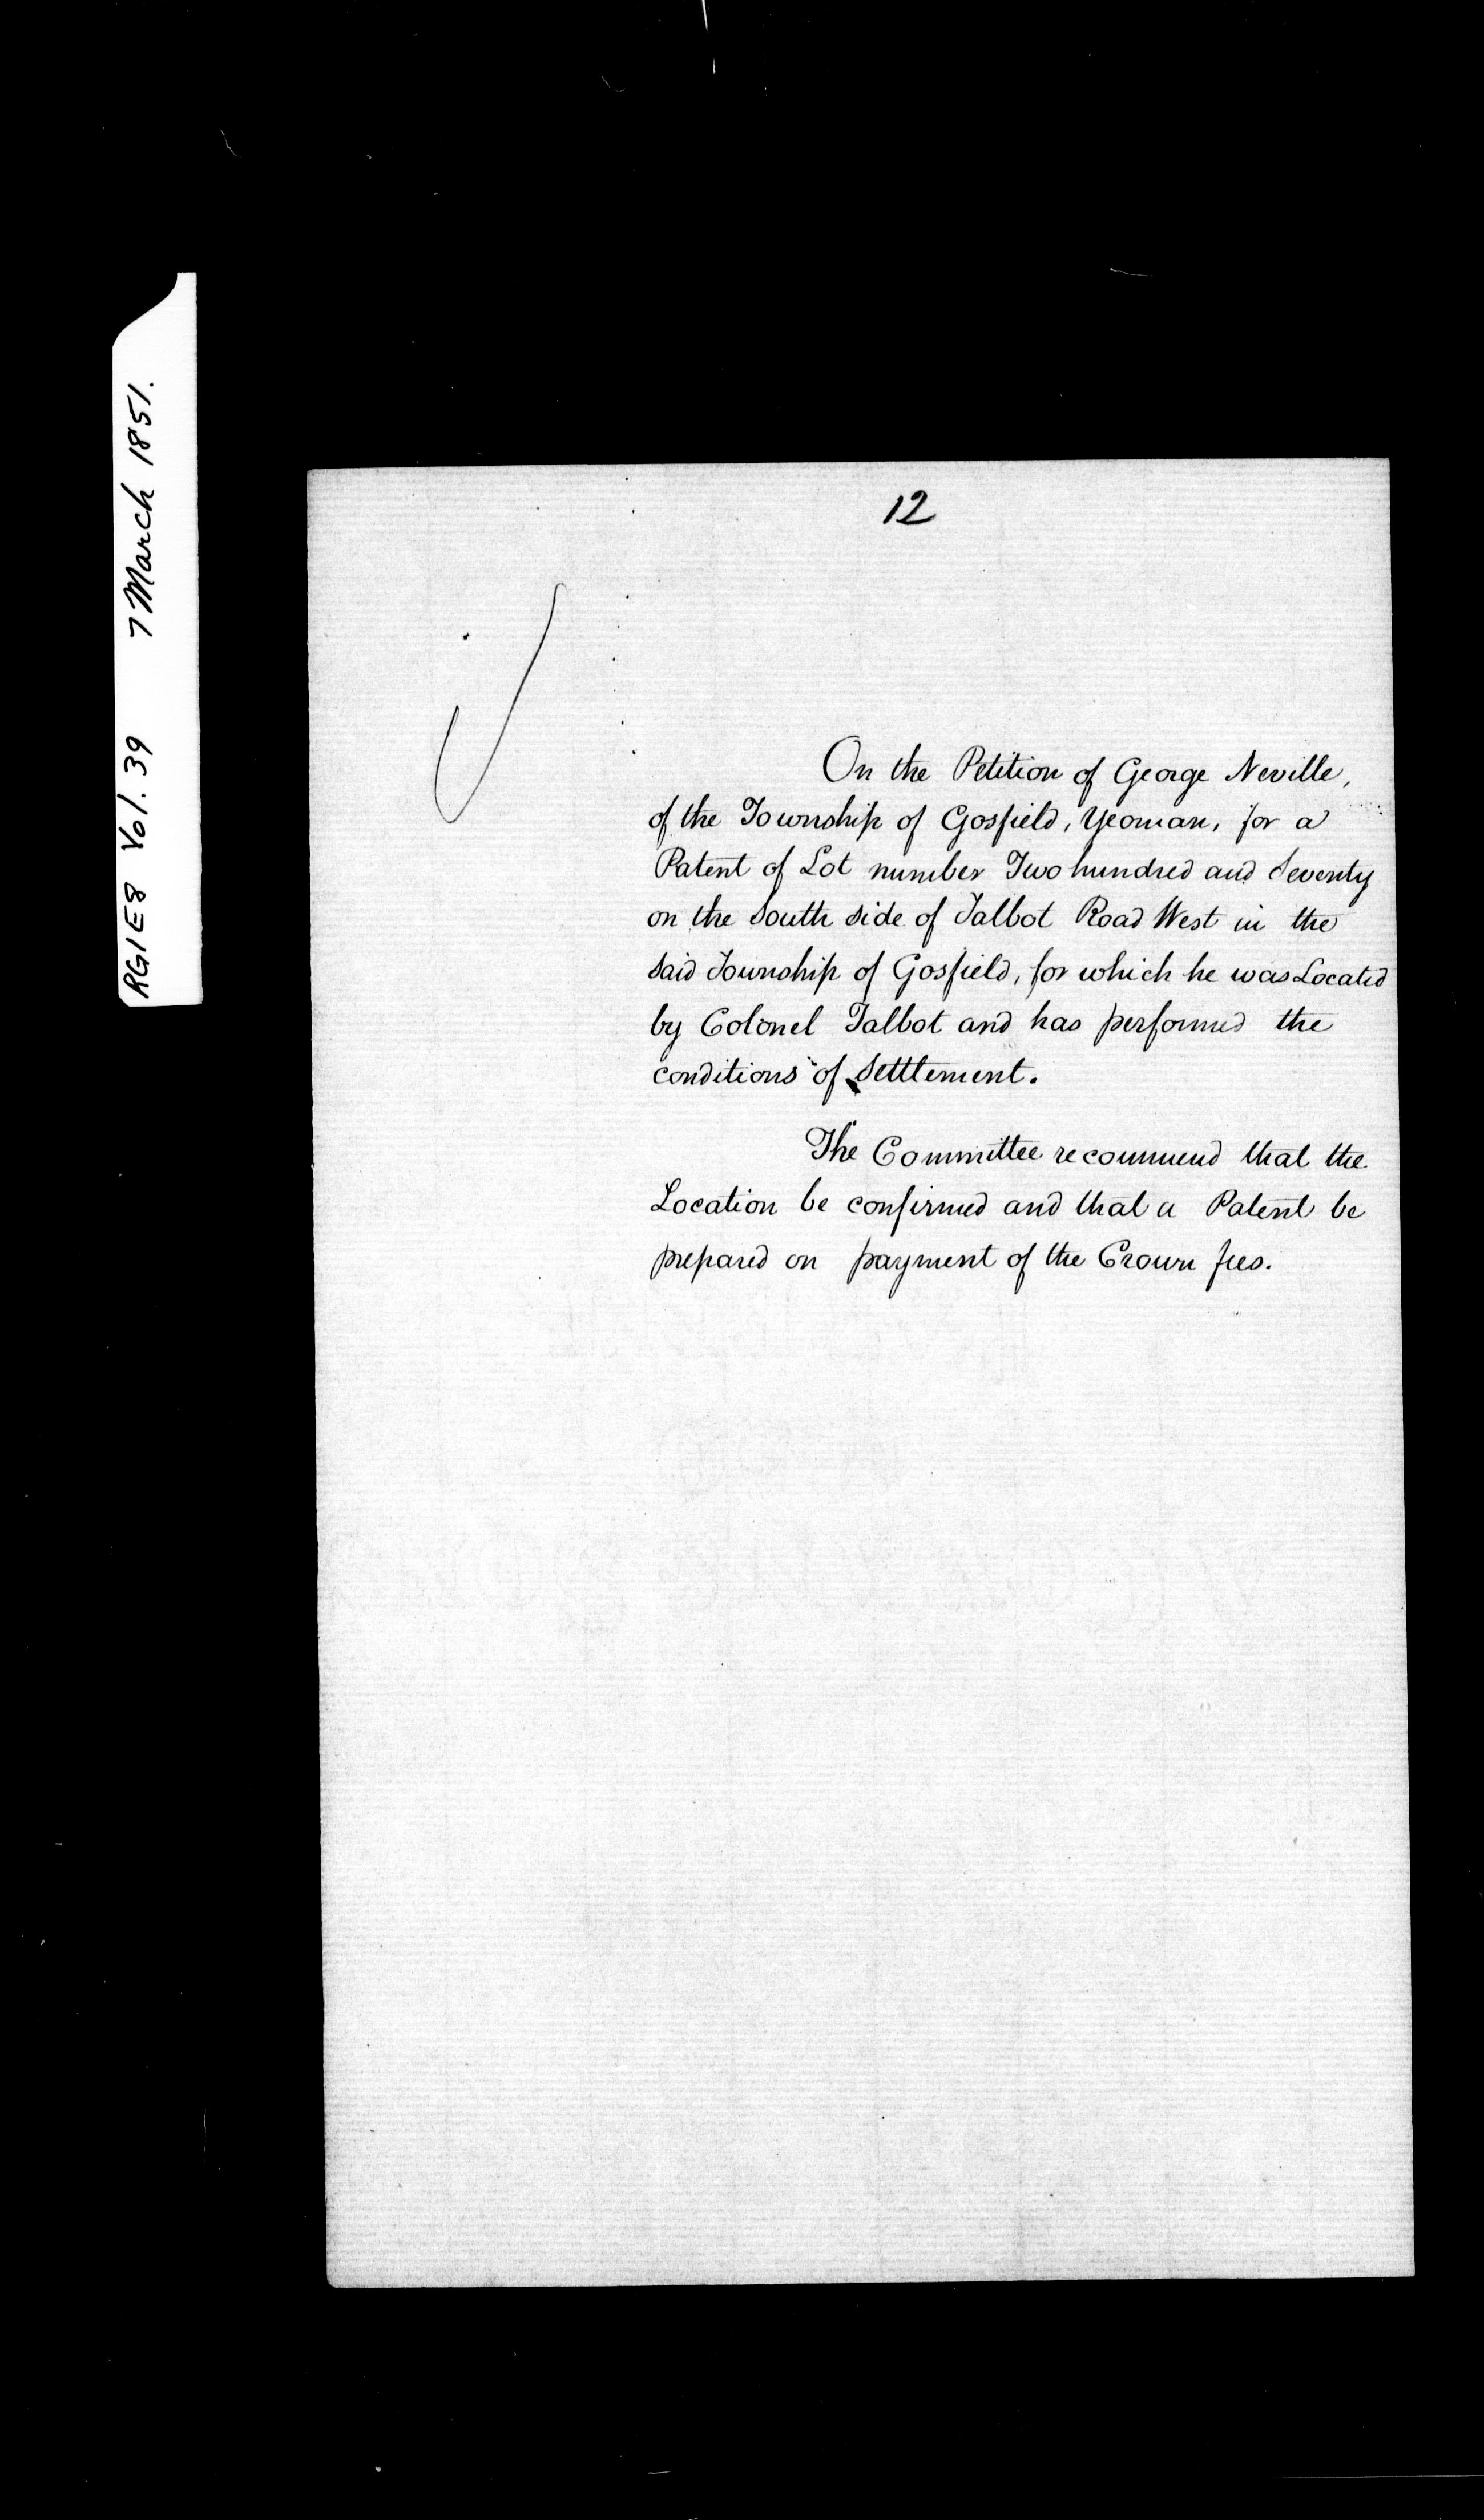 RG1E8 Vol. 39 7 March 1851.
12
On the Petition of George Neville,
of the Township of Gosfield, Yeoman, for a
Patent of Lot number Two hundred and Seventy
on the South side of Talbot Road West in the
said Township of Gosfield, for which he was Located
by Colonel Talbot and has performed the
conditions of Settlement.
The Committee recommend that the
Location be confirmed and that a Patent be
prepared on payment of the Crown fees.